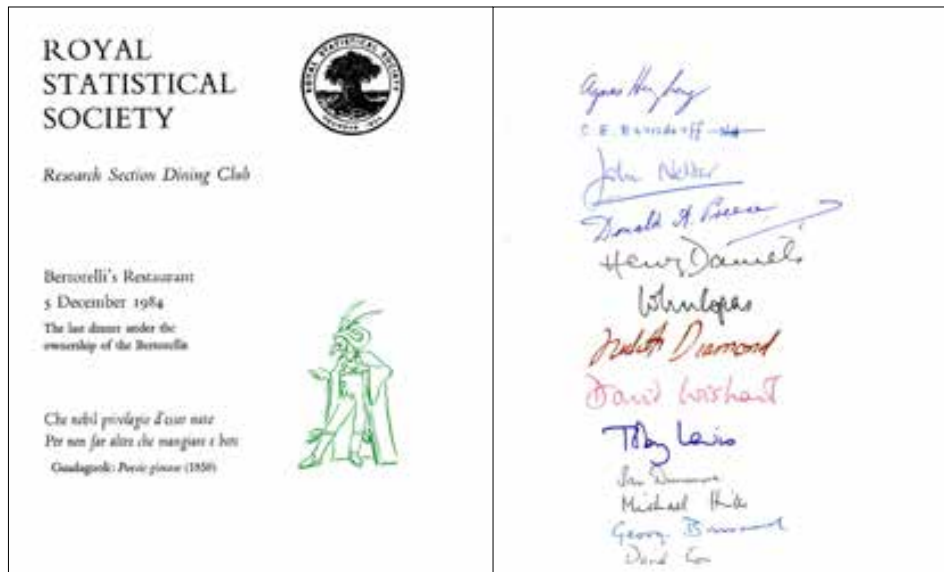 ROYAL
STATISTICAL
SOCIETY
ROYAL STATISTICAL SOCIETY
Research Section Dining Club
Bertorelli's Restaurant
5 December 1984
The last dinner under the
ownership of the Bertorellis
Che nobil privilegio d'esser nate
Per non far altro che mangiare e bere
Guadagnoli: Poesie giocose (1850)
Agnes Herzberg
O. E. Barndorff-Nielsen
John Nelder
Donald A. Preece
Henry Daniels
Judith Diamond
David Wishart
Toby Lewis
Michael Hills
George Barnard
David Cox